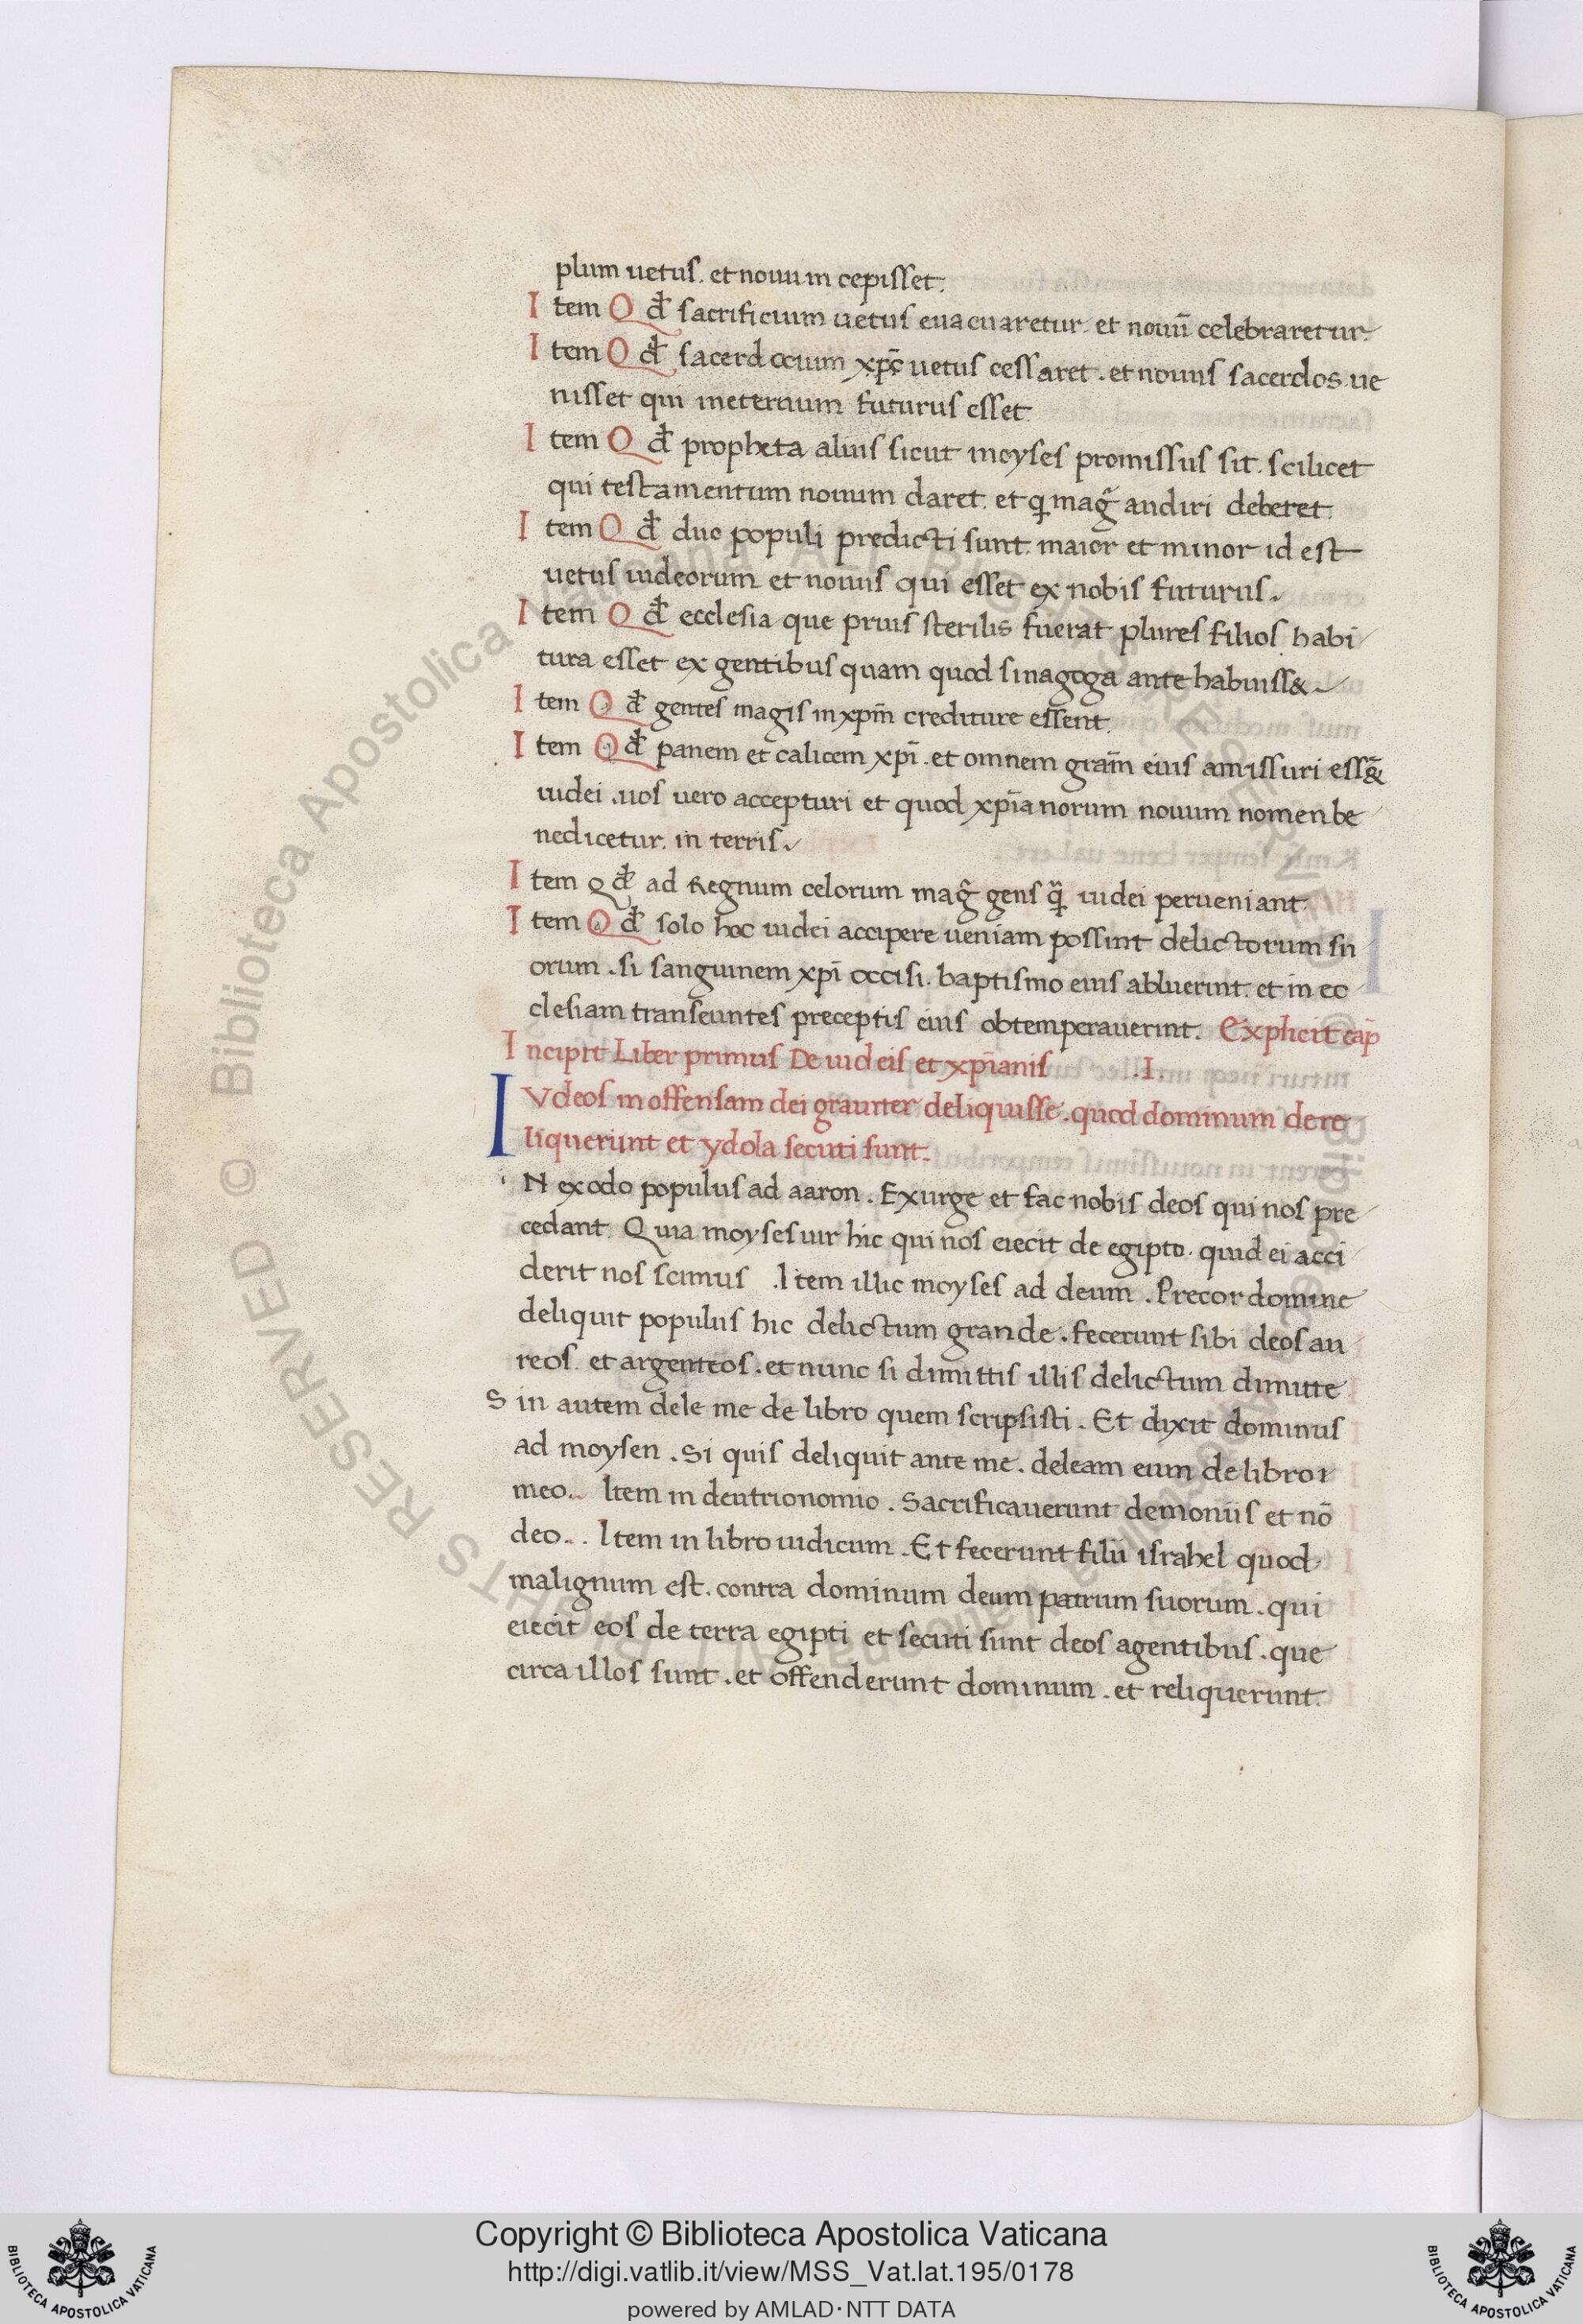 plum uetus. et nouum cepisset.
Item Qđ sacrificium uetus euacuaretur. et nouū celebraretur.
Item Qđ sacerdocium xp̄c uetus cessaret. et nouus sacerdos ue
nisset qui ineternum futurus esset.
Item Qđ propheta alius sicut moyses promissus sit. scilicet
qui testamentum nouum daret. et q̨ mag̃ audiri deberet.
Item Qđ duo populi predicti sunt. maior et minor id est
uetus iudeorum et nouus qui esset ex nobis futurus.
Item Qđ ecclesia que prius sterilis fuerat plures filios habi
tura esset ex gentibus quam quod sinagoga ante habuiss&.
Item Qđ gentes magis in xp̄m crediture essent.
Item Qđ panem et calicem xp̄i. et omnem grām eius amissuri ess&̄
iudei. uos uero accepturi et quod xp̄ianorum nouum nomen be
nedicetur. in terris.
Item qđ ad Regnum celorum mag̃ gens q̨̃ iudei perueniant.
Item Qđ solo hoc iudei accipere ueniam possint delictorum su
orum. si sanguinem xp̄i occisi. baptismo eius abluerint. et in ec
clesiam transeuntes preceptis eius obtemperauerint. Explicit cap̄
Incipit Liber primus De iudeis et xp̄ianis .I.
IVdeos in offensam dei grauiter deliquisse. quod dominum dere
liquerunt et ydola secuti sunt.
N exodo populus ad aaron. Exurge et fac nobis deos qui nos pre
cedant. Quia moyses uir hic qui nos eiecit de egipto. quid ei acci
derit nos scimus .Item illic moyses ad deum. Precor domine
deliquit populus hic delictum grande. fecerunt sibi deos au
reos. et argenteos. et nunc si dimittis illis delictum dimitte
Sin autem dele me de libro quem scripsisti. Et dixit dominus
ad moysen. Si quis deliquit ante me. deleam eum de libro
meo. Item in deutrionomio. Sacrificauerunt demoniis et nō
deo. . Item in libro iudicum. Et fecerunt filii israhel quod
malignum est. contra dominum deum patrum suorum. qui
eiecit eos de terra egipti et secuti sunt deos agentibus. que
circa illos sunt. et offenderunt dominum. et reliquerunt.
© Biblioteca Apostolica Vaticana ALL RIGHTS RESERVED
Copyright © Biblioteca Apostolica Vaticana
http://digi.vatlib.it/view/MSS_Vat.lat.195/0178
powered by AMLAD·NTT DATA
BIBLIOTECA APOSTOLICA VATICANA
BIBLIOTECA APOSTOLICA VATICANA